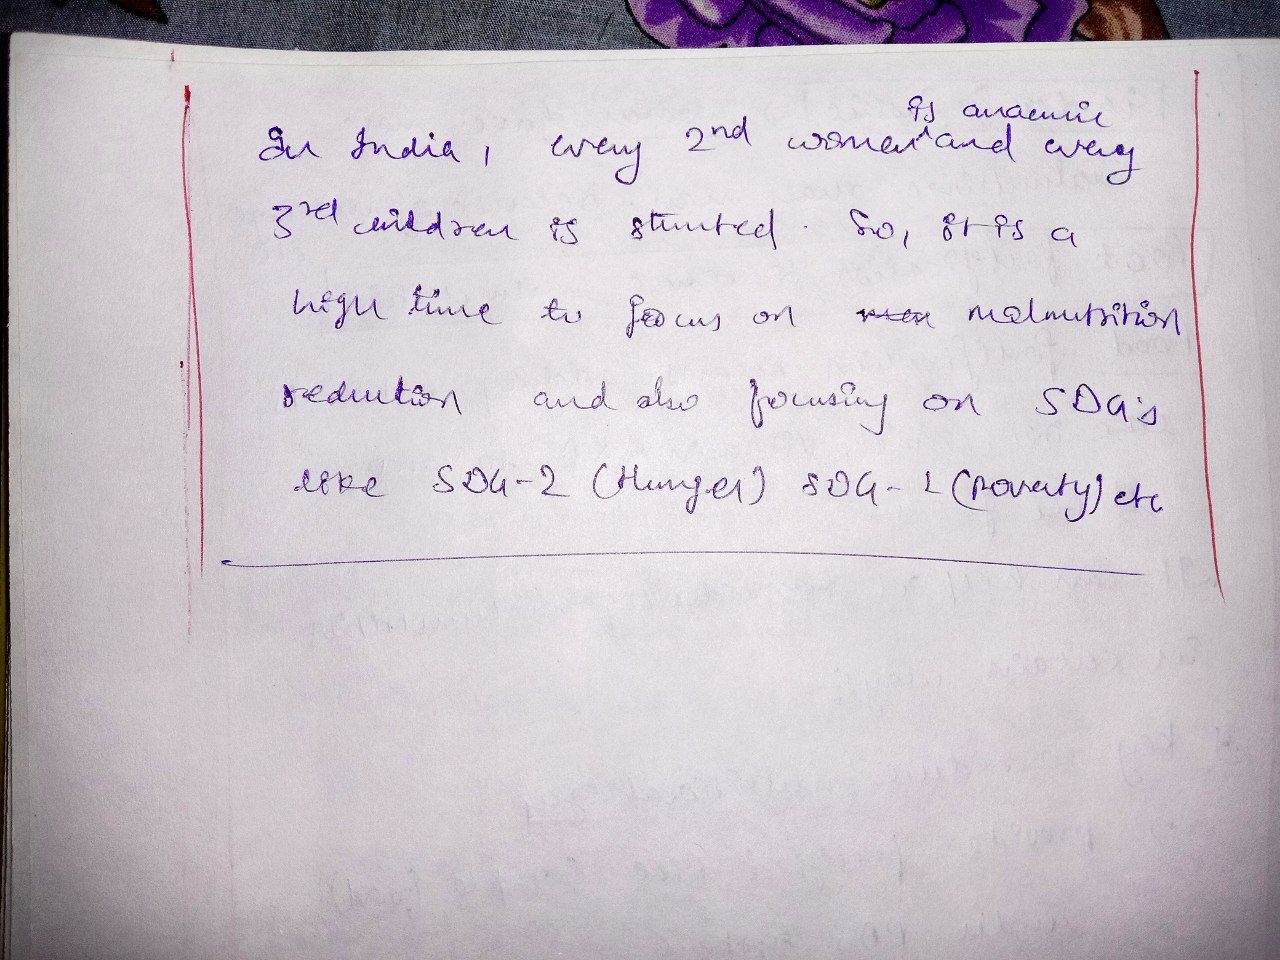 In India, every 2nd women is anaemic and every
3rd children is stunted. So, it is a
high time to focus on malnutrition
reduction and also focusing on SDG's
like SDG-2 (Hunger) SDG-1 (poverty) etc